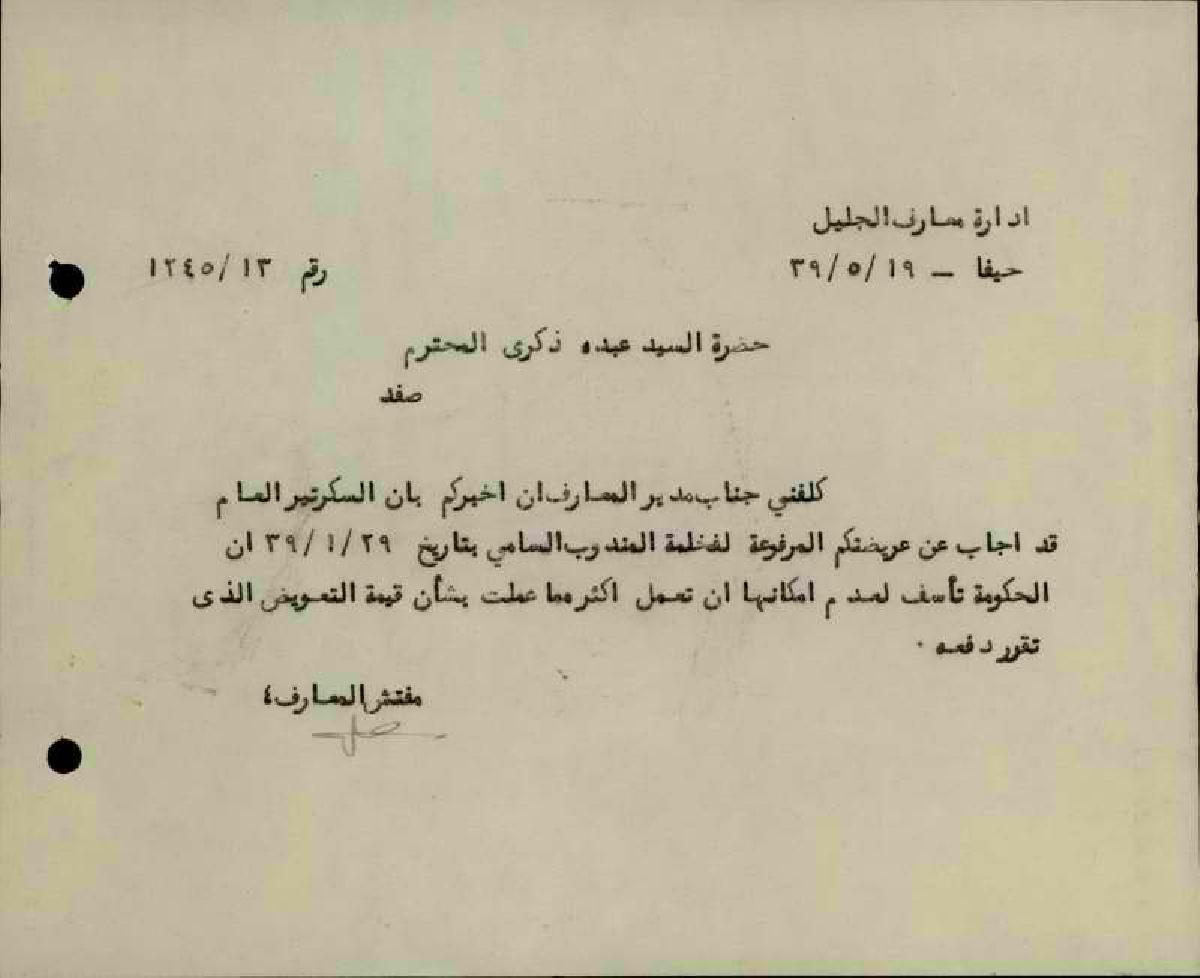 ادارة معارف الجليل
حيفا - ٣٩/٥/١٩
رقم ١٢٤٥/١٣
حضرة السيد عبده ذكرى المحترم
صفد
كلفني جناب مدير المعارف ان اخبركم بان السكرتير العام
قد اجاب عن عريضتكم المرفوعة لفخامة المندوب السامي بتاريخ ٣٩/١/٢٩ ان
الحكومة تأسف لعدم امكانها ان تعمل اكثر مما عملت بشأن قيمة التعويض الذى
تقرر دفعه .
مفتش المعارف ٤